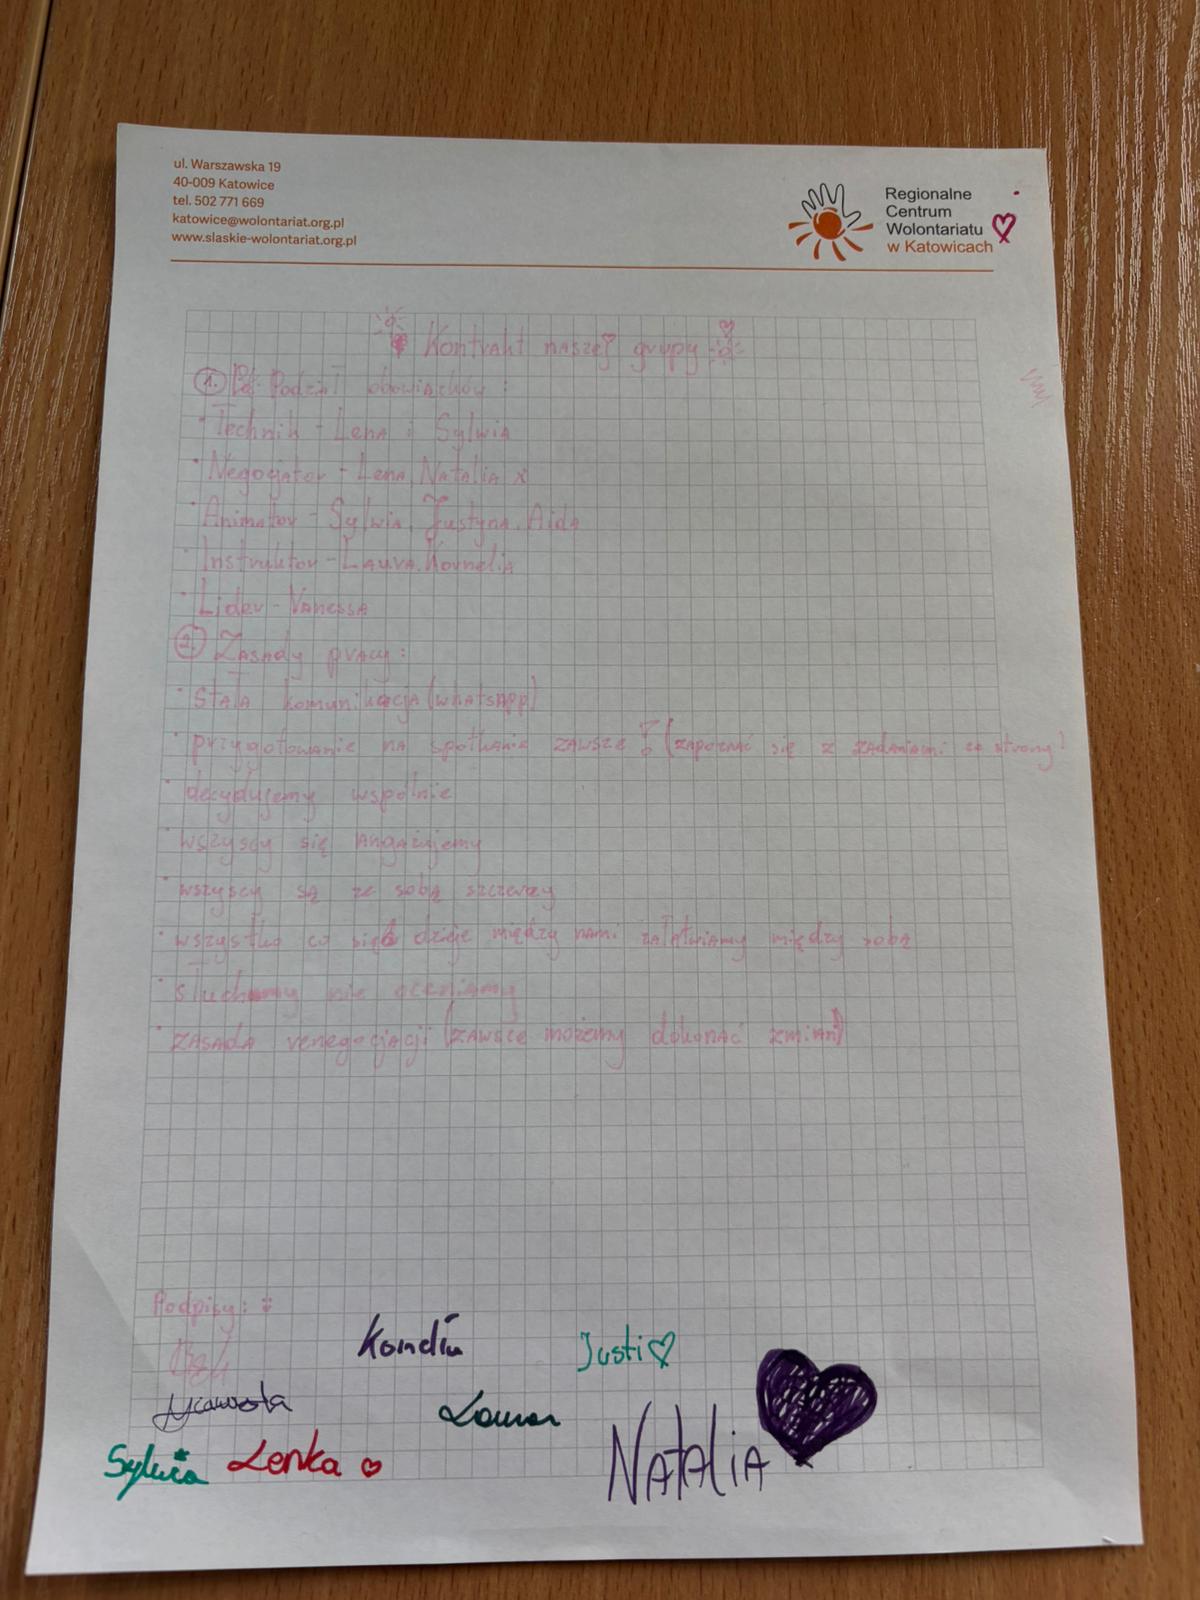 ul. Warszawska 19
40-009 Katowice
tel. 502 771 669
katowice@wolontariat.org.pl
www.slaskie-wolontariat.org.pl
Regionalne
Centrum
Wolontariatu
w Katowicach
Kontrakt naszej grupy
1. Podział obowiązków:
· Technik - Lena i Sylwia
· Negocjator - Lena, Natalia x
· Animator - Sylwia, Justyna, Aida
· Instruktor - Laura, Kornelia
· Lider - Vanessa
2. Zasady pracy:
· stała komunikacja (whatsapp)
· przygotowanie na spotkanie zawsze! (zapoznać się z zadaniami ze strony)
· decydujemy wspólnie
· wszyscy się angażujemy
· wszyscy są ze sobą szczerzy
· wszystko co się dzieje między nami załatwiamy między sobą
· słuchamy nie oceniamy
· zasada renegocjacji (zawsze możemy dokonać zmian)
Podpisy:
Justi
Sylwia Lenka
Natalia